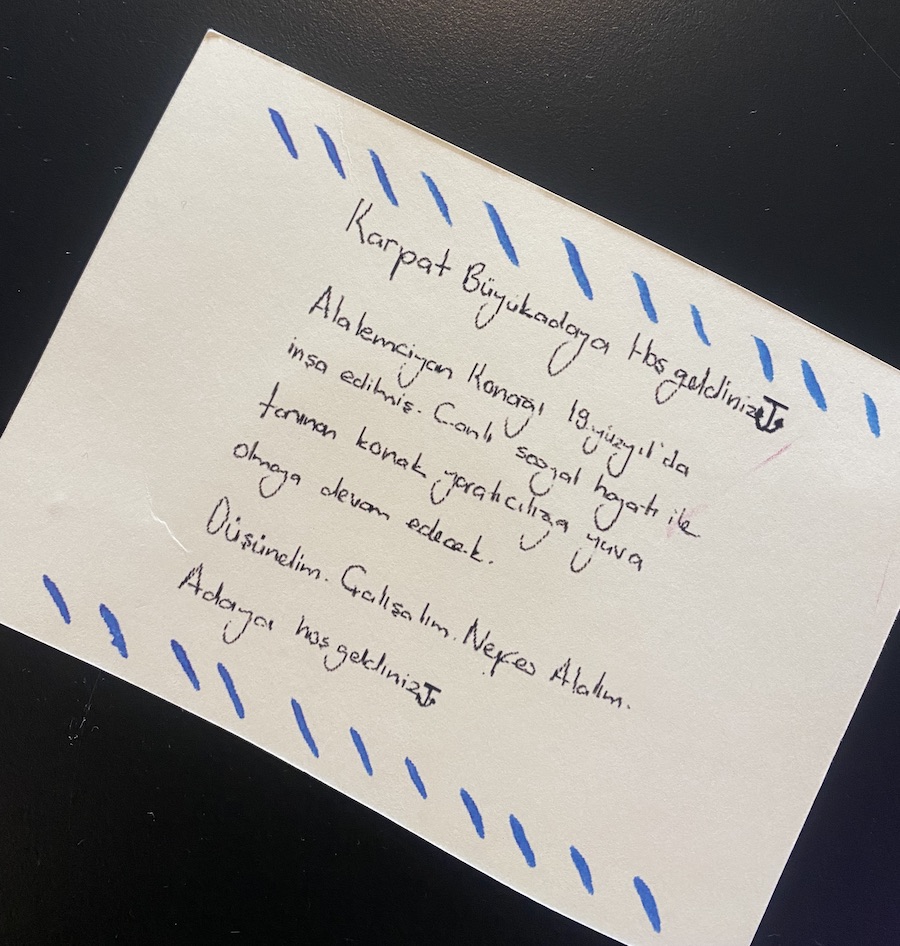 Karpat Büyükadaya Hoş geldiniz⚓
Alalemciyan Konağı 19.yüzyıl'da
inşa edilmiş. Canlı sosyal hayatı ile
tanınan konak yaratıcılığa yuva
olmaya devam edecek.
Düşünelim. Çalışalım. Nefes Alalım.
Adaya hoş geldiniz⚓